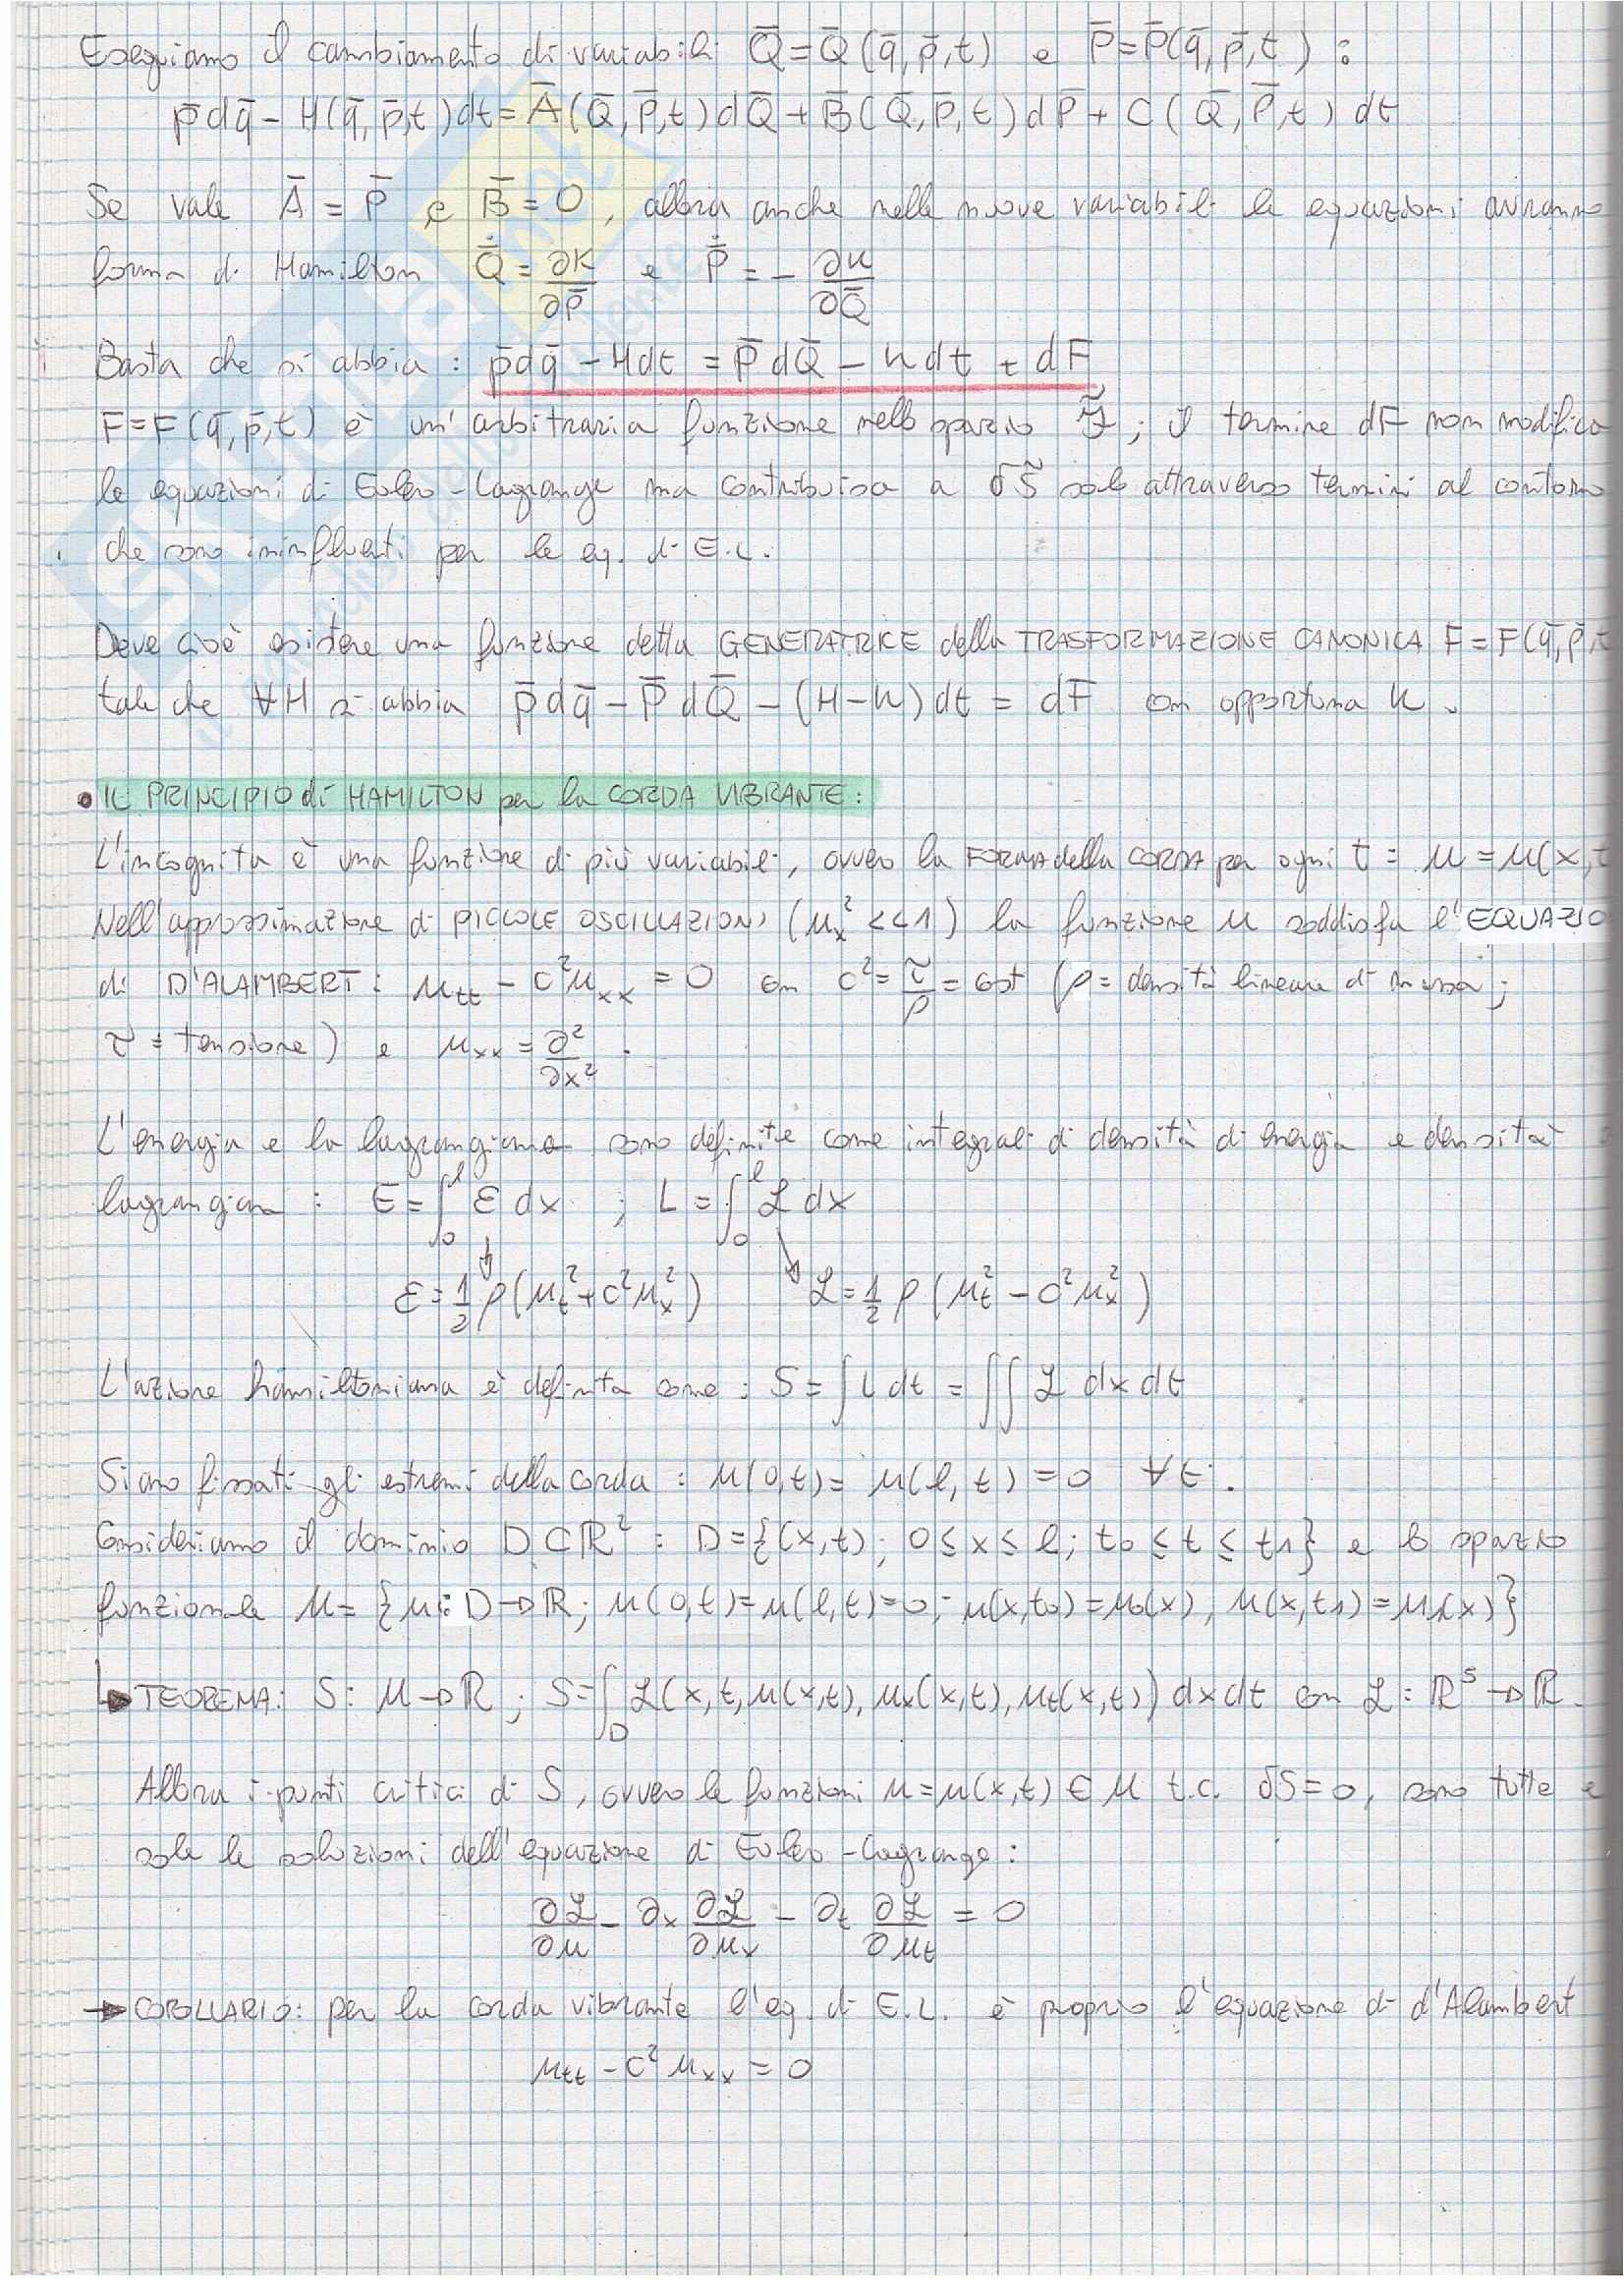 Eseguiamo il cambiamento di variabili Q̄ = Q̄(q̄, p̄, t) e P̄ = P̄(q̄, p̄, t) :
p̄dq̄ - H(q̄, p̄, t)dt = Ā(Q̄, P̄, t)dQ̄ + B̄(Q̄, P̄, t)dP̄ + C(Q̄, P̄, t) dt
Se vale Ā = P̄ e B̄ = 0, allora anche nelle nuove variabili le equazioni avranno
forma di Hamilton Q̄̇ = ∂K/∂P̄ e P̄̇ = - ∂K/∂Q̄
Basta che si abbia : p̄dq̄ - Hdt = P̄dQ̄ - Kdt + dF,
F=F(q̄, p̄, t) è un'arbitraria funzione nello spazio ; il termine dF non modifica
le equazioni di Eulero-Lagrange ma contribuisce a δS̃ solo attraverso termini al contorno
che sono ininfluenti per le eq. di E.L.
Deve cioè esistere una funzione detta GENERATRICE della TRASFORMAZIONE CANONICA F = F(q̄, p̄, t
tale che ∀H si abbia p̄dq̄ - P̄dQ̄ - (H-K)dt = dF con opportuna K.
• IL PRINCIPIO di HAMILTON per la CORDA VIBRANTE:
L'incognita è una funzione di più variabili, ovvero la FORMA della CORDA per ogni t : u = u(x, t
Nell'approssimazione di PICCOLE OSCILLAZIONI (uₓ² << 1) la funzione u soddisfa l'EQUAZIO
di D'ALAMBERT: u_tt - c²u_xx = 0 con c² = τ/ρ = cost (ρ = densità lineare di massa;
τ = tensione) e u_xx = ∂²/∂x² .
L'energia e la lagrangiana sono definite come integrali di densità di energia e densità
lagrangiana : E = ∫₀ˡ ℰ dx ; L = ∫₀ˡ ℒ dx
ℰ = 1/2 ρ(u_t² + c²u_x²) ℒ = 1/2 ρ(u_t² - c²u_x²)
L'azione hamiltoniana è definita come : S = ∫L dt = ∫∫ ℒ dx dt
Siano fissati gli estremi della corda : u(0,t) = u(l,t) = 0 ∀t.
Consideriamo il dominio D⊂ℝ² : D={(x,t); 0≤x≤l; t₀≤t≤t₁} e lo spazio
funzionale M = {u: D→ℝ; u(0,t)=u(l,t)=0; u(x,t₀)=u₀(x), u(x,t₁)=u₁(x)}
↳ TEOREMA: S: M→ℝ ; S=∫_D ℒ(x,t,u(x,t),u_x(x,t),u_t(x,t)) dx dt con ℒ : ℝ⁵→ℝ.
Allora i punti critici di S, ovvero le funzioni u=u(x,t) ∈ M t.c. δS=0, sono tutte e
sole le soluzioni dell'equazione di Eulero-Lagrange:
∂ℒ/∂u - ∂x ∂ℒ/∂u_x - ∂t ∂ℒ/∂u_t = 0
→ COROLLARIO: per la corda vibrante l'eq. di E.L. è proprio l'equazione di d'Alambert
u_tt - c² u_xx = 0